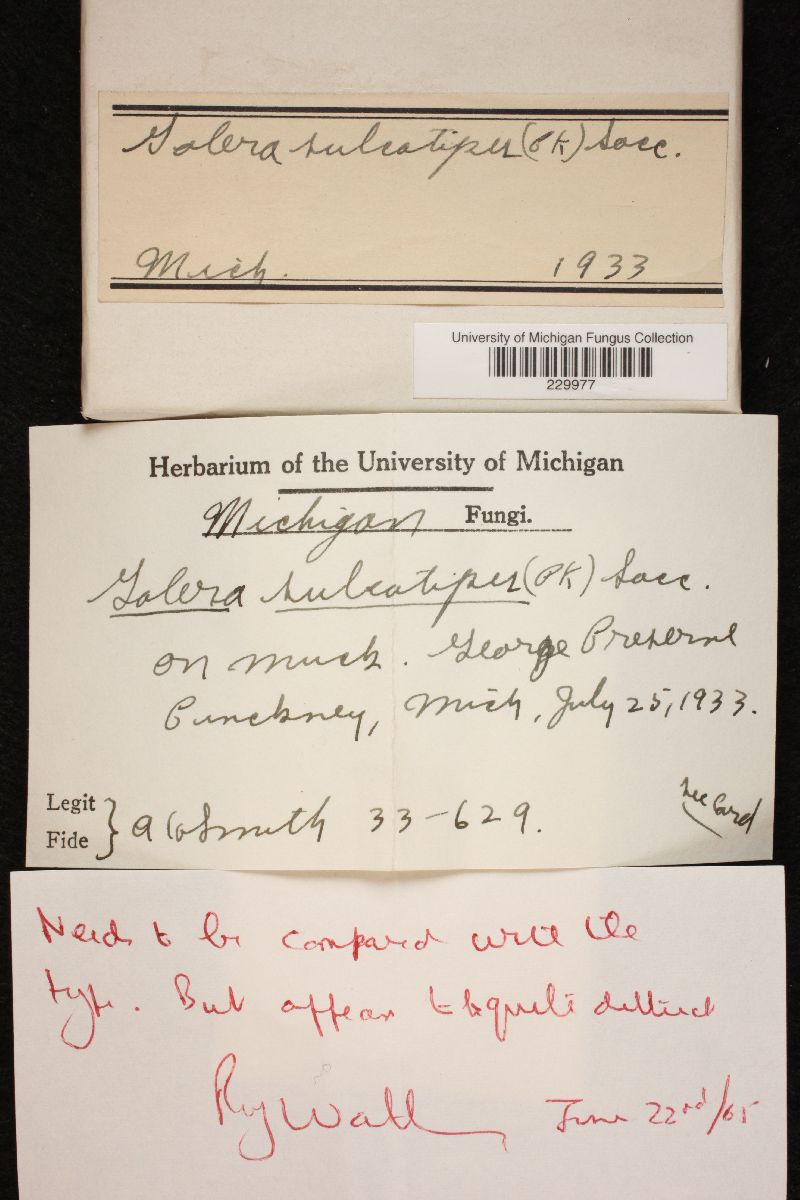 Galera sulcatipes (Pk) Sacc.
Mich. 1933
University of Michigan Fungus Collection
229977
Herbarium of the University of Michigan
Michigan Fungi.
Galera sulcatipes (Pk) Sacc.
on muck. George Preserve
Pinckney, Mich, July 25, 1933.
Legit
Fide } A H Smith 33-629.
see Card
Needs to be compared with the
type. But appears to be quite distinct
Roy Watl June 22nd/65